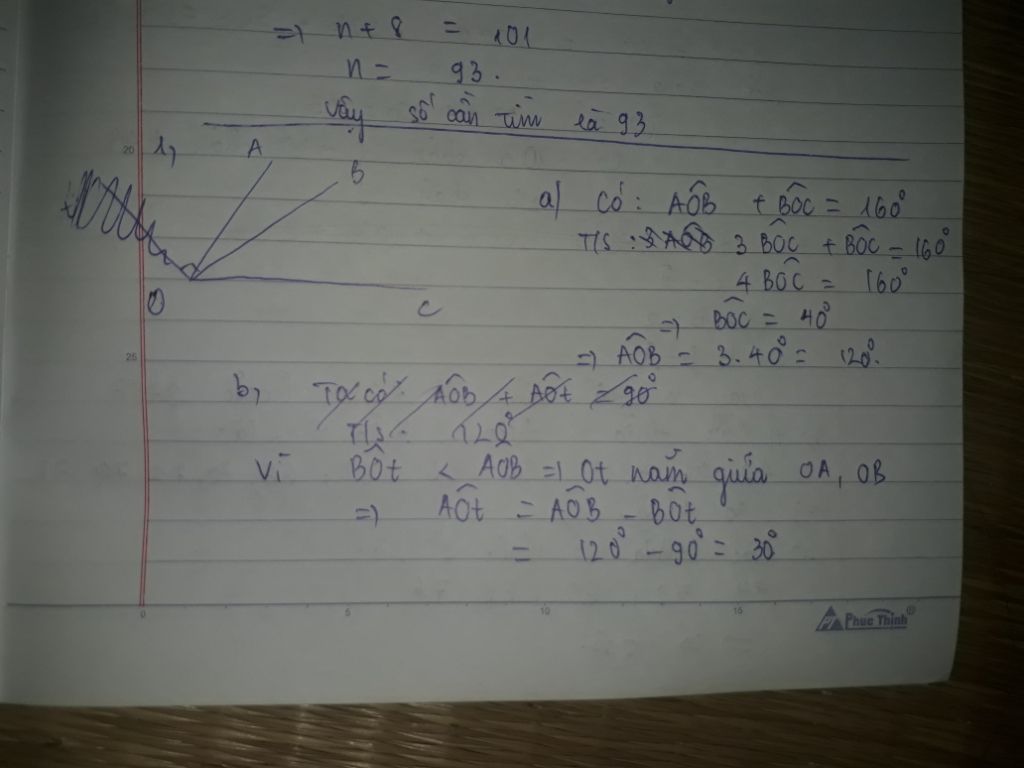 => n + 8 = 101
n = 93.
Vậy số cần tìm là 93
20
1,
A
B
O
C
a) Có: AÔB + BÔC = 160°
T/s: 3 AÔB 3 BÔC + BÔC = 160°
4 BÔC = 160°
=> BÔC = 40°
=> AÔB = 3.40° = 120°.
25
b, Ta có: AÔB + AÔt = 90°
T/s: 120°
Vì BÔt < AÔB => Ot nằm giữa OA, OB
=> AÔt = AÔB - BÔt
= 120° - 90° = 30°
0 5 10 15
Phuc Thinh®